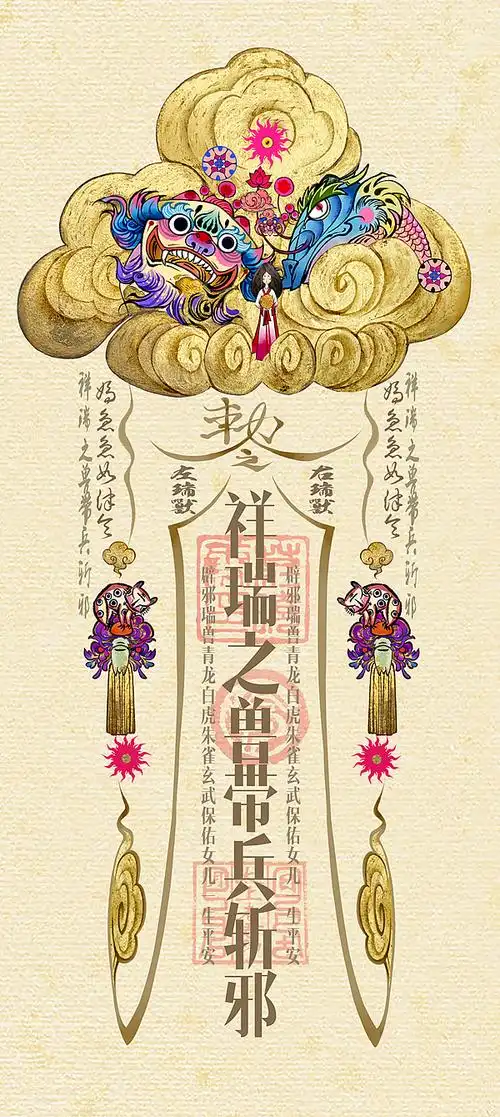 勅之
右瑞獸
左瑞獸
祥瑞之兽帶兵斩邪
嫣急急如律令
祥瑞之兽帶兵斩邪
辟邪瑞兽青龙白虎朱雀玄武保佑女儿一生平安
祥瑞之兽帶兵斩邪
辟邪瑞兽青龙白虎朱雀玄武保佑女儿一生平安
嫣急急如律令
祥瑞之兽帶兵斩邪